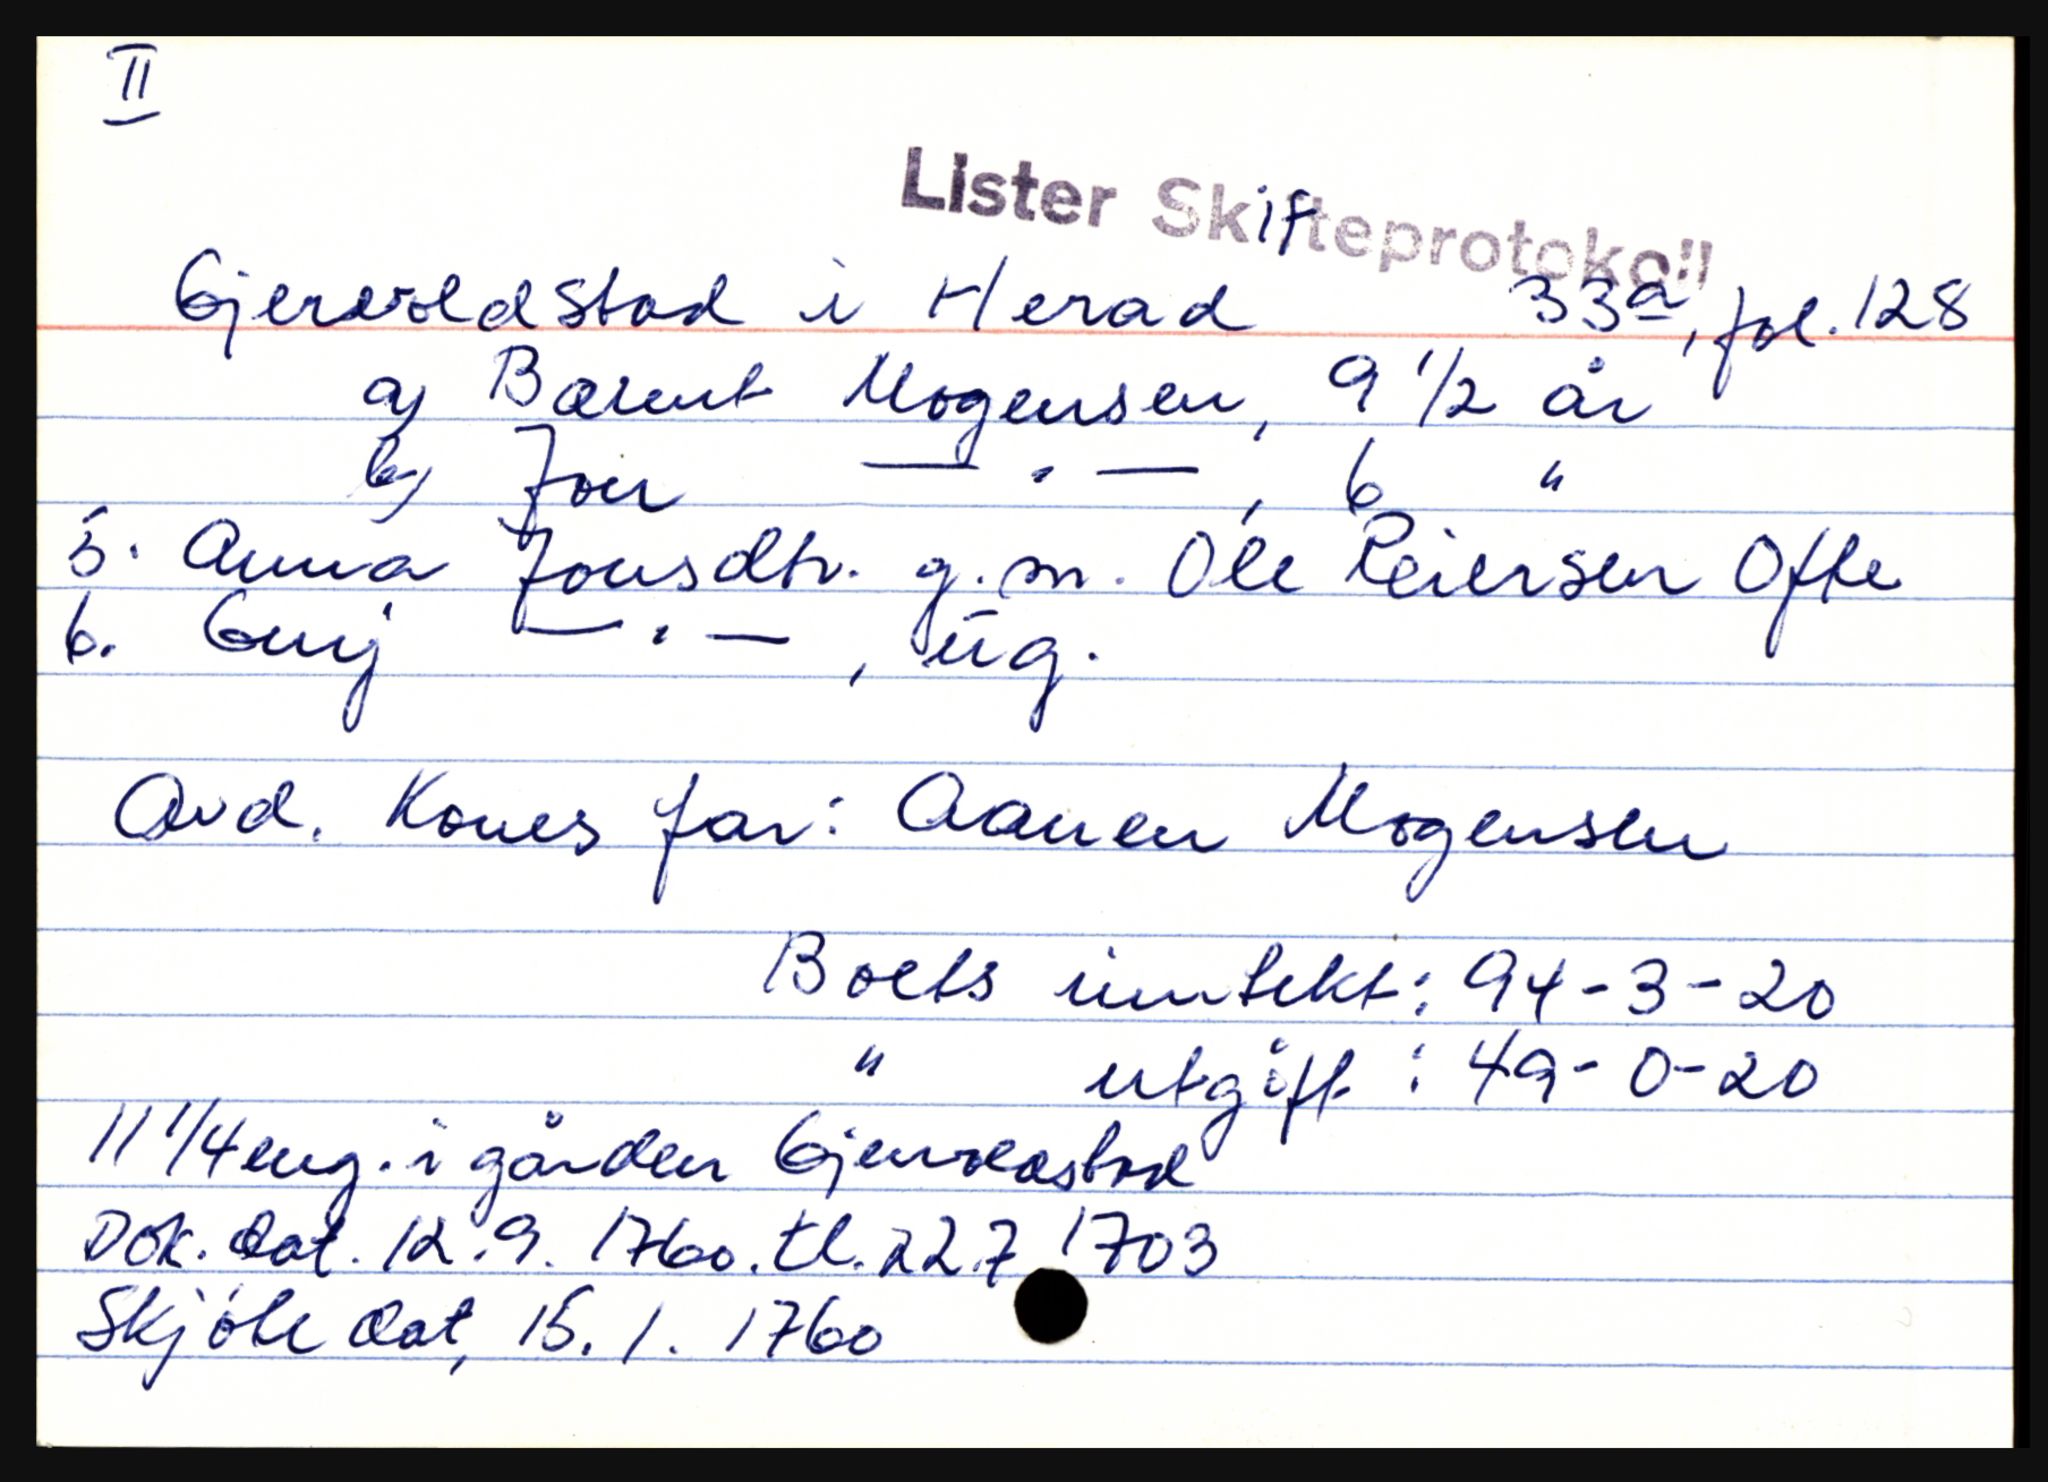 II
Lister Skifteprotokoll
Gjervoldstad i Herad 33a, fol. 128
a) Bærent Mogensen, 9 1/2 år
b) Jon — " —, 6 "
5. Anna Jonsdtr. g.m. Ole Peiersen Ofte
6. Gurj — " —, ug.
Avd. Kones far: Aanen Mogensen
Boets inntekt: 94-3-20
" utgift : 49-0-20
11 1/4 eng. i gården Gjervoldstad
Dok. dat. 12.9. 1760. tl. 22.7 1703
Skjöte dat, 15. 1. 1760